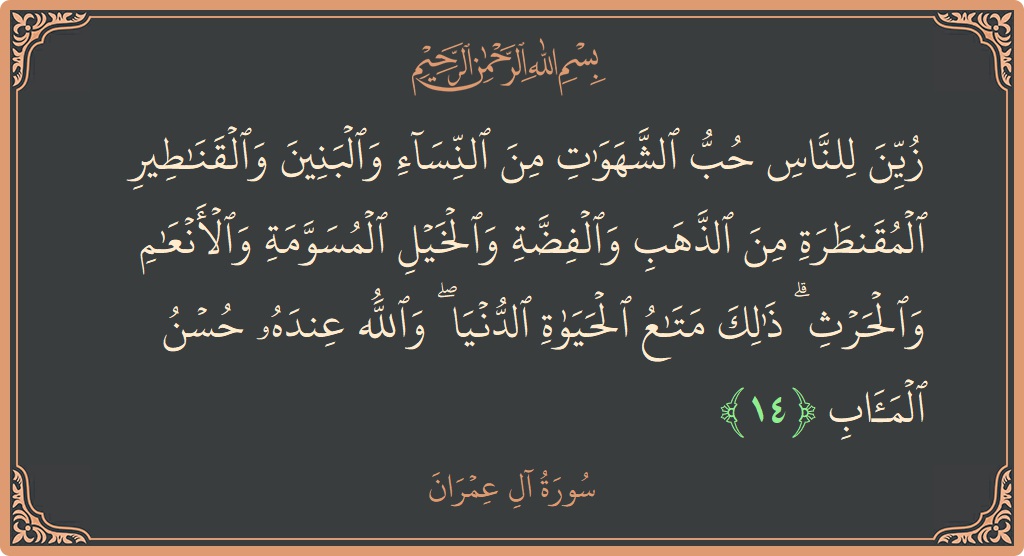 بِسْمِ اللَّهِ الرَّحْمَٰنِ الرَّحِيمِ
زُيِّنَ لِلنَّاسِ حُبُّ ٱلشَّهَوَٰتِ مِنَ ٱلنِّسَآءِ وَٱلْبَنِينَ وَٱلْقَنَٰطِيرِ
ٱلْمُقَنطَرَةِ مِنَ ٱلذَّهَبِ وَٱلْفِضَّةِ وَٱلْخَيْلِ ٱلْمُسَوَّمَةِ وَٱلْأَنْعَٰمِ
وَٱلْحَرْثِ ۗ ذَٰلِكَ مَتَٰعُ ٱلْحَيَوٰةِ ٱلدُّنْيَا ۖ وَٱللَّهُ عِندَهُۥ حُسْنُ
ٱلْمَـَٔابِ ﴿١٤﴾
سُورَةُ آلِ عِمْرَانَ